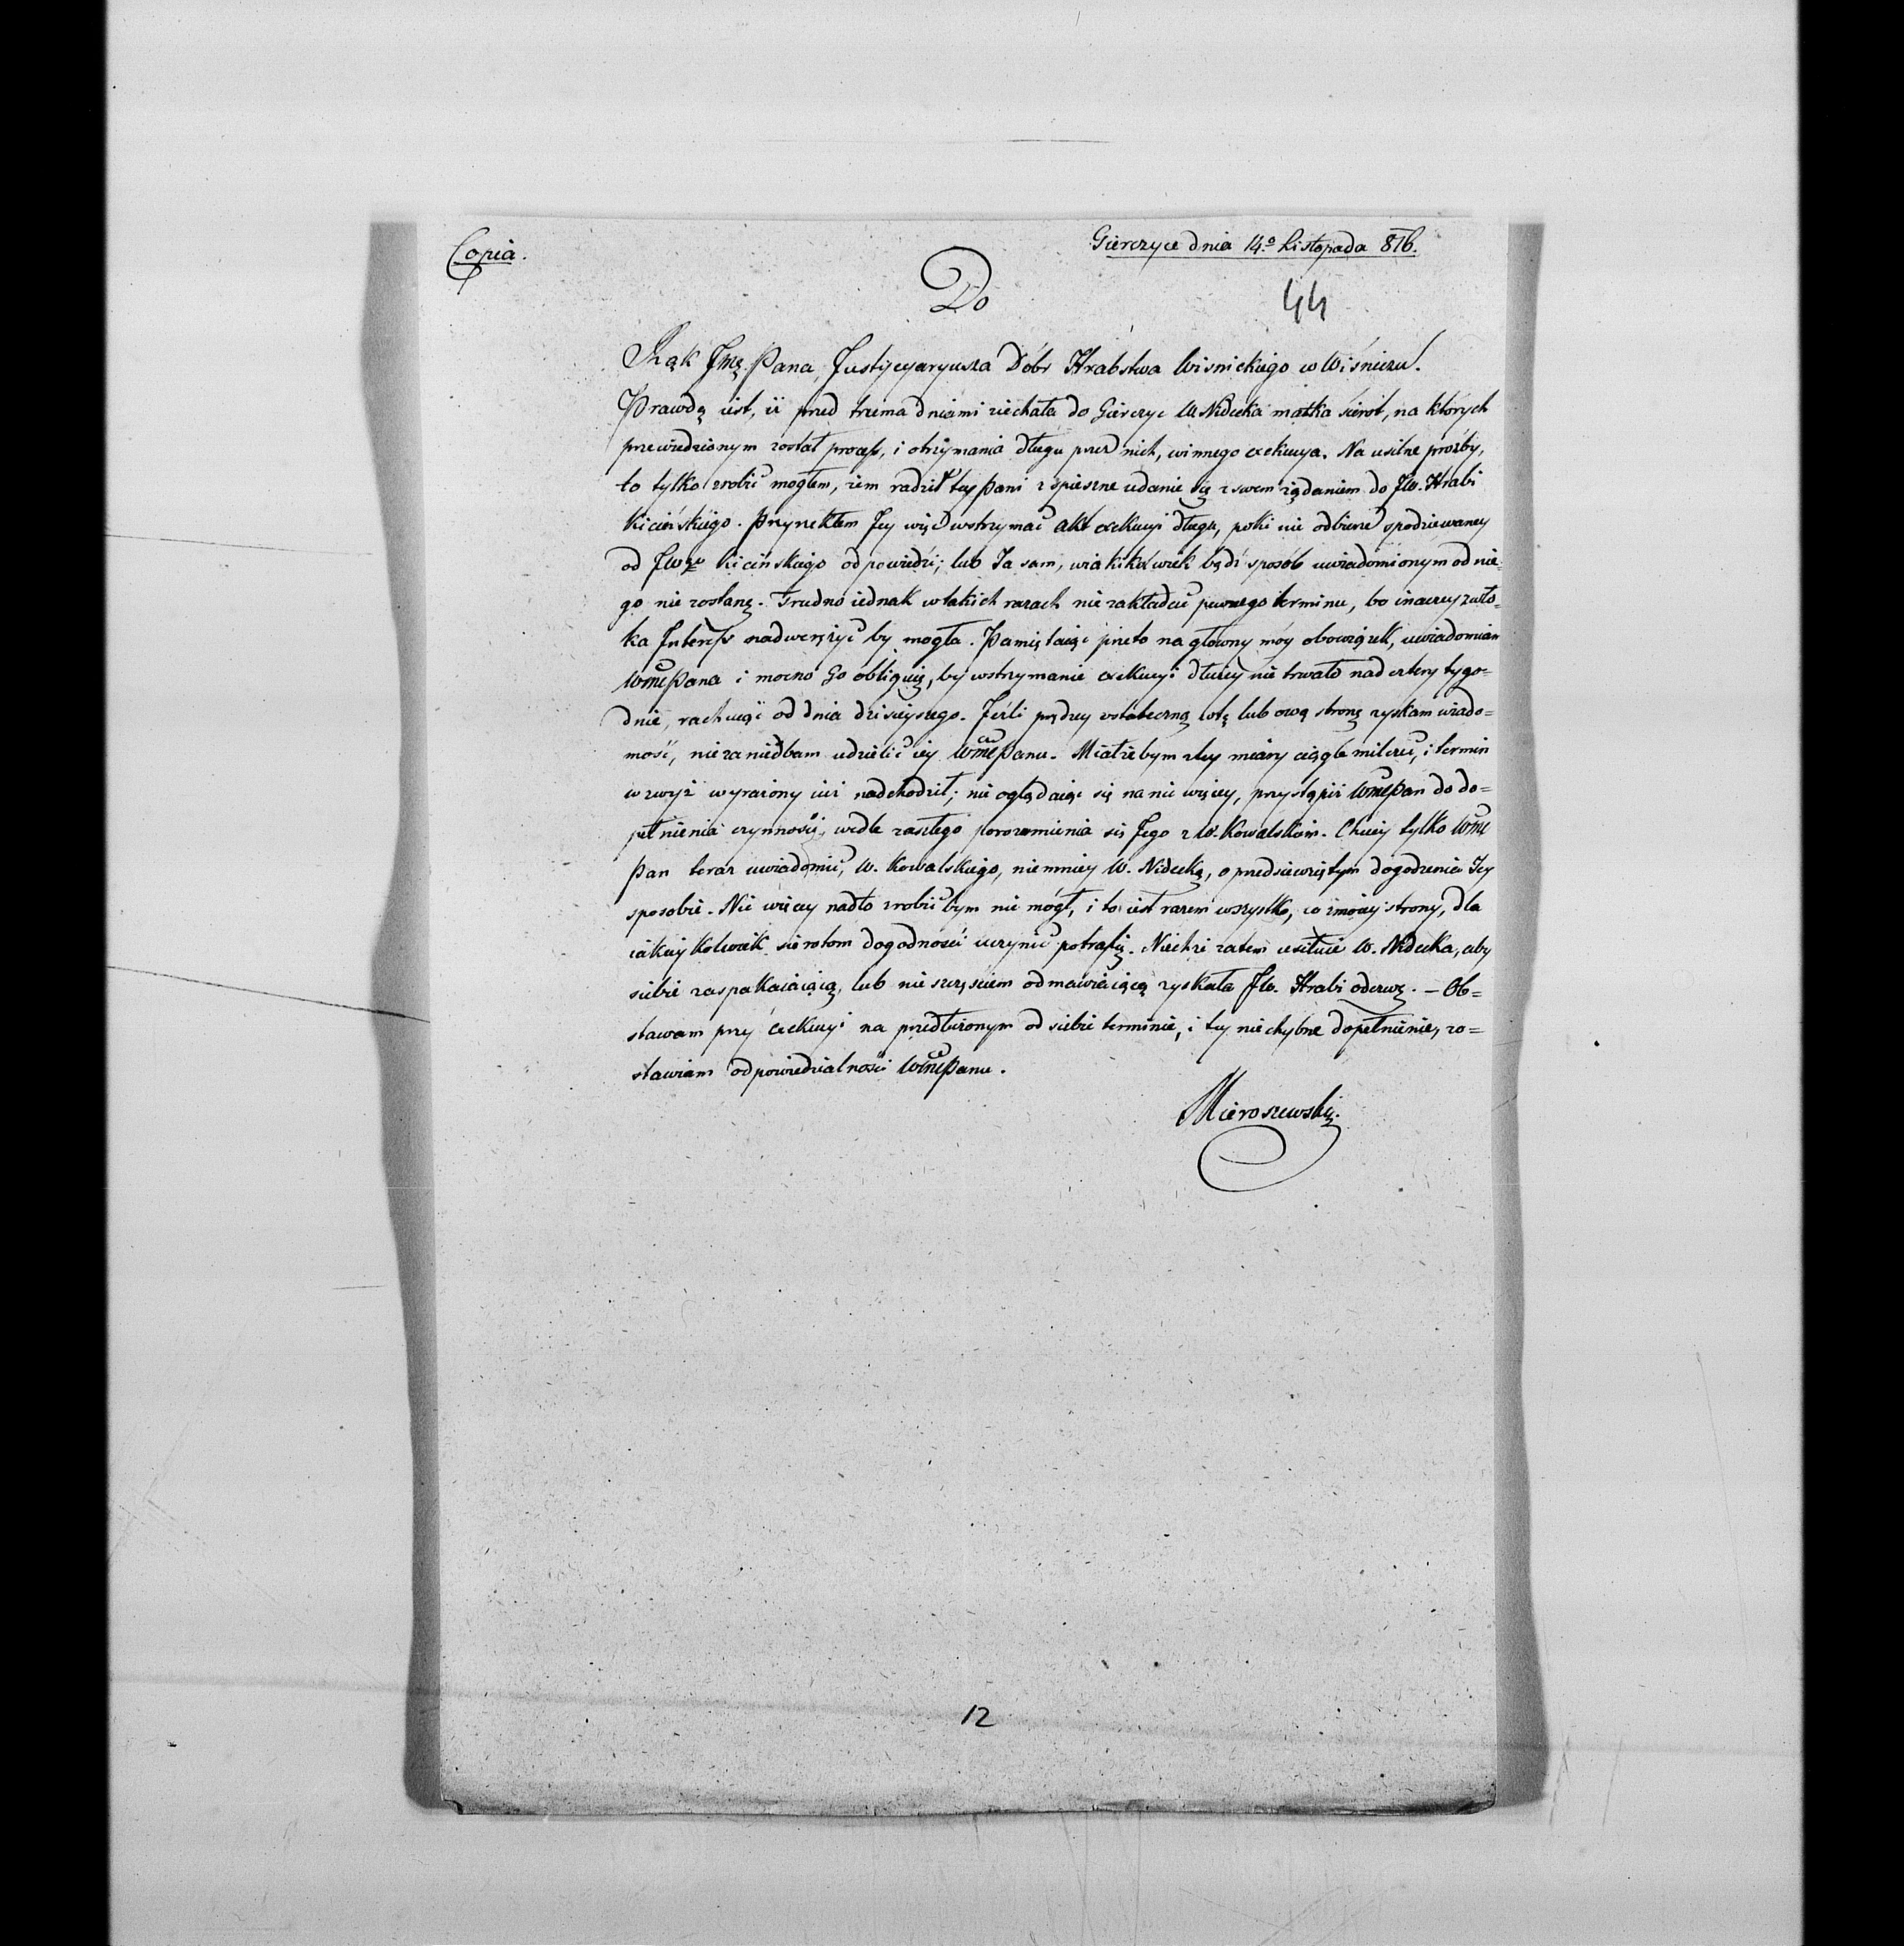 Copia.
Gierczyce dnia 14.º Listopada 816.
Do
44
Rąk Jmę. Pana, Justycyaryusza Dóbr Hrabstwa Wisnickiego w Wiśniczu.
Prawdą iest, iż przed trzema dniami ziechała do Gierczyc W. Nidecka matka sierot, na których
przewiedzionym został process, i otrzymania długu przez nich, winnego exekucya. Na usilne prośby,
to tylko zrobić mogłem, żem radził tey Pani z spieszne udanie się z swem żądaniem do JW. Hrabi
Kicińskiego. Przyrzekłem Jey więc wstrzymać akt exekucyi długu, poki nie odbierze spodziewaney
od JWgo Kicińskiego odpowiedzi; lub Ja sam, wiakikolwiek bądź sposób uwiadomionym od nie-
go nie zostanę. Trudno iednak w takich razach nie zakładać pewnego terminu, bo inaczey zwło-
ka Interess nadwerężyć by mogła. Pamiętaiąc przeto na główny móy obowiązek, uwiadomiam
WMcPana i mocno Go obliguię, by wstrzymanie exekucyi dłużey nie trwało nad cztery tygo-
dnie, rachuiąc od dnia dzisieyszego. Jeśli prędzey ostateczną w tę lub ową stronę zyskam wiado=
mość, nie zaniedbam udzielić iey WMcPanu. Miałżebym z tey miary ciągle milczeć, i termin
wzwyż wyrażony iuż nadchodził; nie oglądaiąc się na nic więcey, przystąpisz WMcPan do do=
pełnienia czynności, wedle zaszłego porozumienia się Jego z W. Kowalskim. Chciey tylko WMc
Pan teraz uwiadomić, W. Kowalskiego, niemniey W. Nidecką, o przedsiewziętym dogodzenia Jey
sposobie. Nic więcey nadto zrobić bym nie mógł, i to iest razem wszystko, co z moiey strony, dla
iakieykolwiek sierotom dogodności uczynić potrafię. Niechże zatem usiłuie W. Nidecka, aby
siebie zaspakaiaiącą, lub nieszczęściem odmawiaiącą zyskała JW. Hrabi odezwę. — Ob=
stawam przy exekucyi na przedłużonym od siebie terminie, i tey niechybne dopełnienie, zo=
stawiam odpowiedzialności WMcPanu.
Mieroszewski.
12